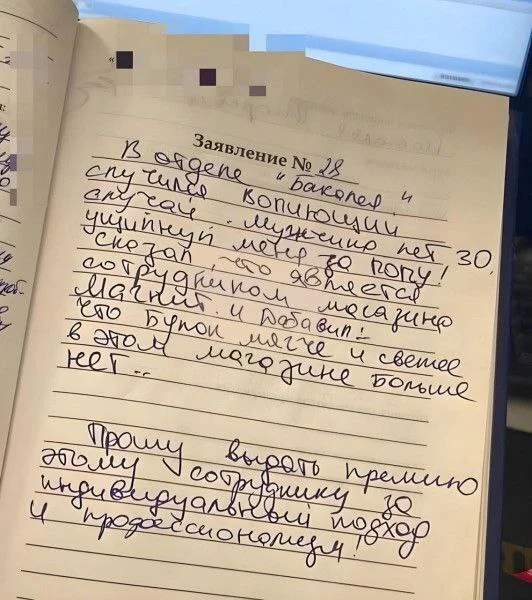 Заявление № 28
В отделе "Бакалея"
случился вопиющий
случай. Мужчина лет 30,
ущипнул меня за попу!
Сказал, что является
сотрудником магазина
Магнит. и добавил:
что булок мягче и свежее
в этом магазине больше
нет...
Прошу выдать премию
этому сотруднику за
индивидуальный подход
и профессионализм!